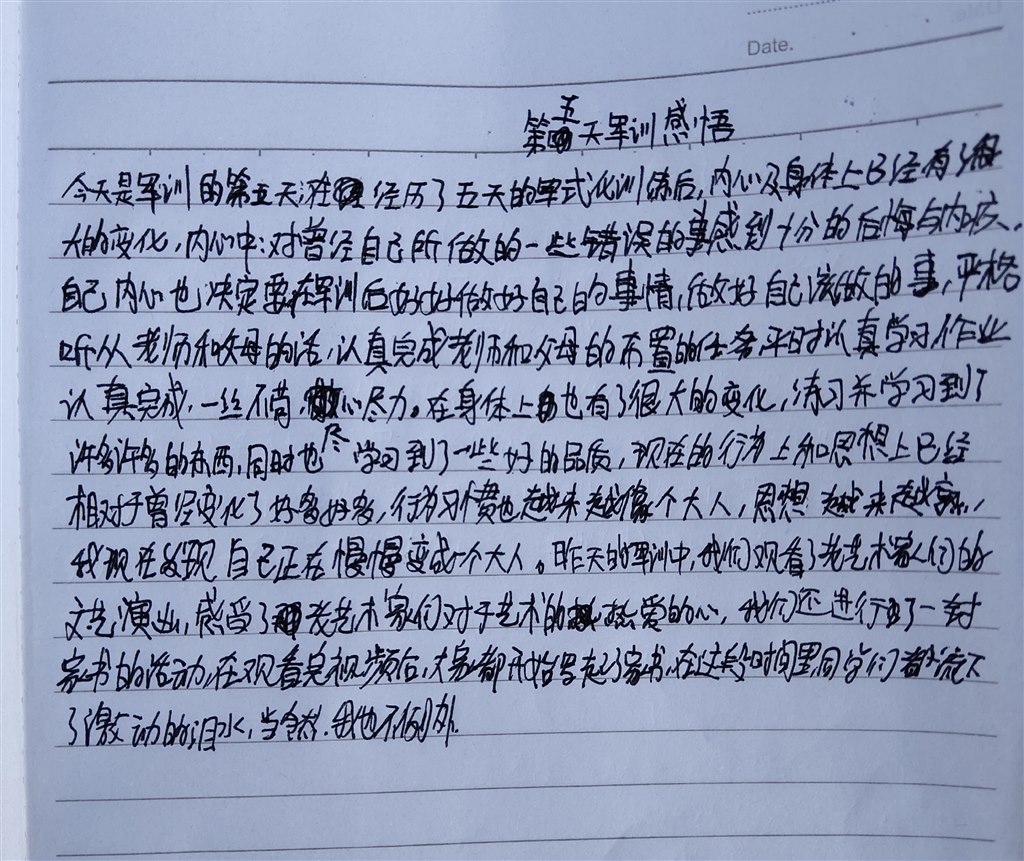 Date.
第五天军训感悟
今天是军训的第五天,在经历了五天的军式化训练后,内心及身体上已经有了很
大的变化,内心中:对曾经自己所做的一些错误的事感到十分的后悔与内疚,
自己内心也决定要在军训后好好做好自己的事情,做好自己该做的事,严格
听从老师和父母的话,认真完成老师和父母的布置的任务,平时认真学习,作业
认真完成,一丝不苟,尽心尽力。在身体上也有了很大的变化,练习并学习到了
许多许多的东西,同时也学习到了一些好的品质,现在的行为上和思想上已经
相对于曾经变化了好多好多,行为习惯也越来越像个大人,思想越来越成熟,
我现在发现自己正在慢慢变成个大人。昨天的军训中,我们观看了老艺术家们的
文艺演出,感受了老艺术家们对于艺术的热爱的心,我们还进行了一封
家书的活动,在观看完视频后,大家都开始写起了家书,在这段时间里同学们都流下
了激动的泪水,当然.我也不例外.